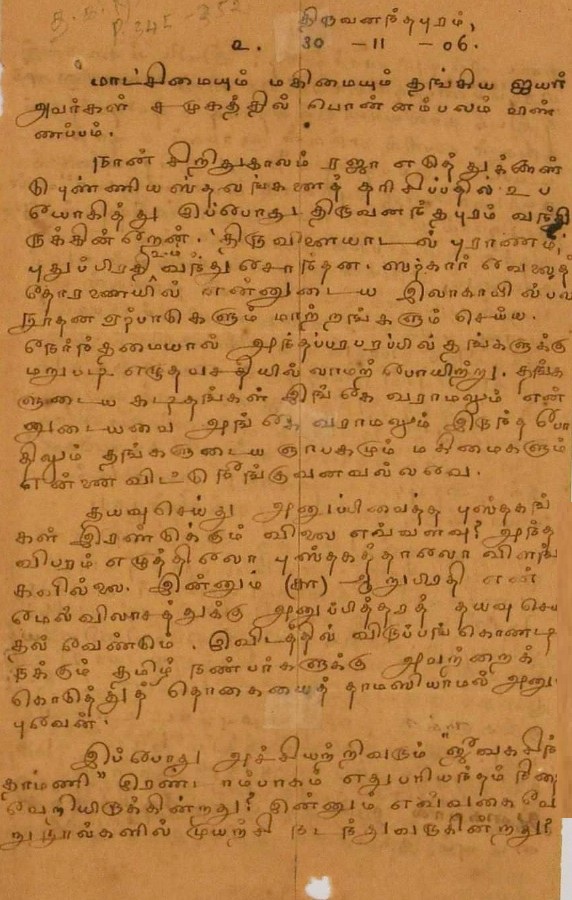 P. 34I - 352
திருவனந்தபுரம்,
உ. 30 - 11 - 06.
மாட்சிமையும் மகிமையும் தங்கிய ஐயர்
அவர்கள் சமுகத்தில் பொன்னம்பலம் விண்
ணப்பம்.
நான் சிறிதுகாலம் ரஜா எடுத்துக்கொண்
டு புண்ணியஸ்தலங்களைத் தரிசிப்பதில் உப
யோகித்து இப்பொழுது திருவனந்தபுரம் வந்தி
ருக்கின்றேன். "திருவிளையாடல் புராணம்,
புதுப்பிரதி வந்து சேர்ந்தன. ஸர்கார் வேலைத்
தோரணையில் என்னுடைய இலாகாவில் பல
நூதன ஏற்பாடுகளும் மாற்றங்களும் செய்ய
நேர்ந்தமையால் அந்தப்பரபரப்பில் தங்களுக்கு
மறுபடி எழுத வசதியில்லாமற் போயிற்று. தங்க
ளுடைய கடிதங்கள் இங்கே வராமலும் என்
னுடையவை அங்கே வராமலும் இருந்த போ
திலும் தங்களுடைய ஞாபகமும் மகிமைகளும்
என்னை விட்டு நீங்குவனவல்லவே.
தயவுசெய்து அனுப்பிவைத்த புஸ்தகங்
கள் இரண்டுக்கும் விலை எவ்வளவு? அந்த
விபரம் எழுத்திலோ புஸ்தகத்தாலோ விளங்
கவில்லை. இன்னும் (௬) ஆறுபிரதி என்
மேல்விலாசத்துக்கு அனுப்பித்தரத் தயவுசெய்
தல் வேண்டும். இவிடத்தில் விருப்பங்கொண்டி
ருக்கும் தமிழ் நண்பர்களுக்கு அவற்றைக்
கொடுத்துத் தொகையைத் தாமஸியாமல் அனு
புவேன்.
இப்பொழுது அச்சியற்றிவரும் "ஜீவகசிந்
தாமணி" ரெண்டாம்பாகம் எதுபரியந்தம் நிறை
வேறியிருக்கின்றது? இன்னும் எவ்வகை வே
று நூல்களில் முயற்சி நடந்துவருகின்றது?